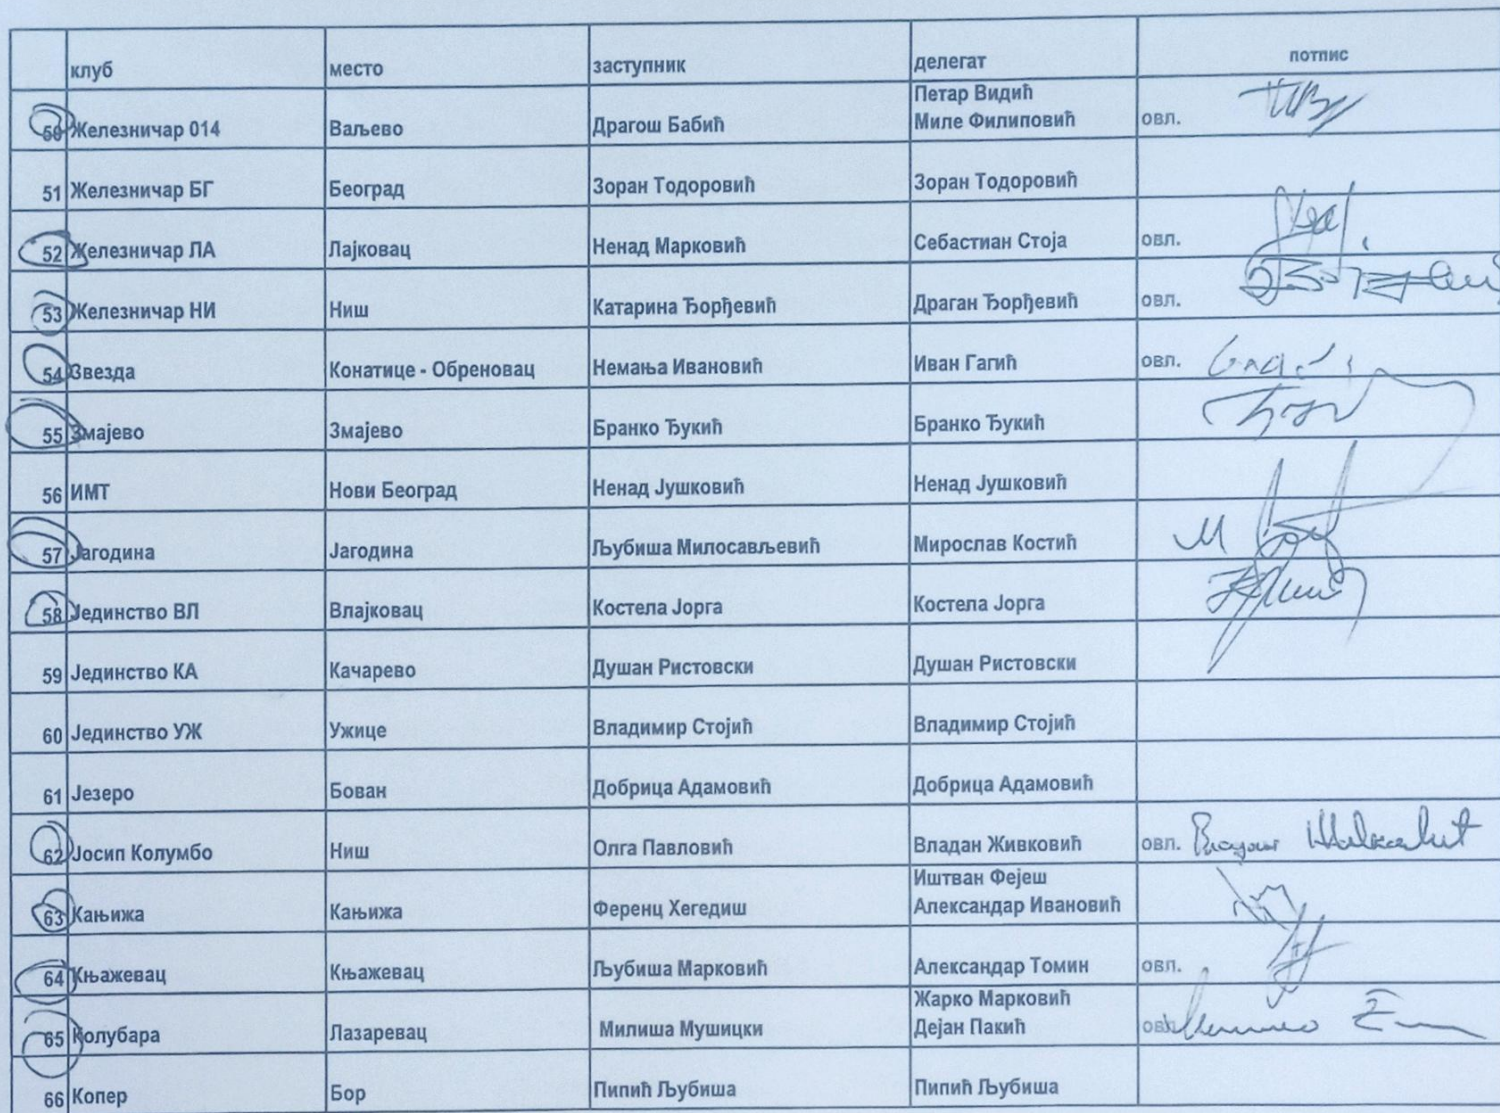 клуб место заступник делегат потпис
50 Железничар 014 Ваљево Драгош Бабић Петар Видић
Миле Филиповић овл.
51 Железничар БГ Београд Зоран Тодоровић Зоран Тодоровић
52 Железничар ЛА Лајковац Ненад Марковић Себастиан Стоја овл.
53 Железничар НИ Ниш Катарина Ђорђевић Драган Ђорђевић овл.
54 Звезда Конатице - Обреновац Немања Ивановић Иван Гагић овл.
55 Змајево Змајево Бранко Ђукић Бранко Ђукић
56 ИМТ Нови Београд Ненад Јушковић Ненад Јушковић
57 Јагодина Јагодина Љубиша Милосављевић Мирослав Костић
58 Јединство ВЛ Влајковац Костела Јорга Костела Јорга
59 Јединство КА Качарево Душан Ристовски Душан Ристовски
60 Јединство УЖ Ужице Владимир Стојић Владимир Стојић
61 Језеро Бован Добрица Адамовић Добрица Адамовић
62 Јосип Колумбо Ниш Олга Павловић Владан Живковић овл.
63 Кањижа Кањижа Ференц Хегедиш Иштван Фејеш
Александар Ивановић
64 Књажевац Књажевац Љубиша Марковић Александар Томин овл.
65 Колубара Лазаревац Милиша Мушицки Жарко Марковић
Дејан Пакић овл.
66 Копер Бор Пипић Љубиша Пипић Љубиша